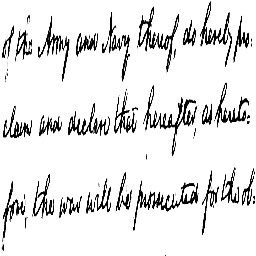 of the Army and Navy thereof, do hereby pro-
claim and declare that hereafter, as hereto-
fore, the war will be prosecuted for the ob-